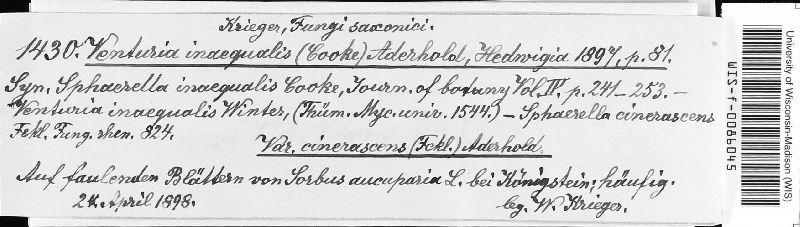 Krieger, Fungi saxonici.
1430. Venturia inaequalis (Cooke) Aderhold, Hedwigia 1897, p. 81.
Syn. Sphaerella inaequalis Cooke, Journ. of botany Vol. IV. p. 241-253. –
Venturia inaequalis Winter, (Thüm. Myc. univ. 1544.) – Sphaerella cinerascens
Fckl. Fung. rhen. 824.
Var. cinerascens (Fckl.) Aderhold.
Auf faulenden Blättern von Sorbus aucuparia L. bei Königstein; häufig.
April 1898.
leg. W. Krieger.
University of Wisconsin-Madison (WIS)
WIS-f-0086045